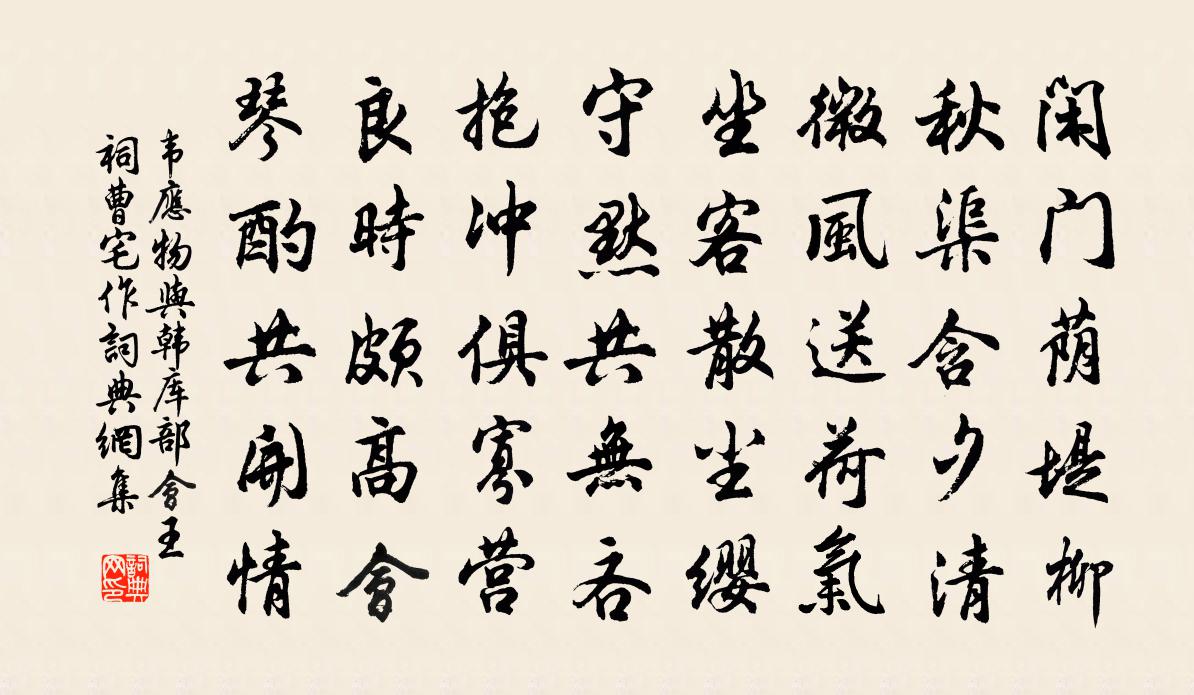 闲门荫堤柳
秋渠含夕清
微風送荷氣
坐客散尘缨
守默共無吝
抱冲俱寡营
良時頗高會
琴酌共開情
韦應物與韩库部會王
祠曹宅作詞典網集
詞典
网印